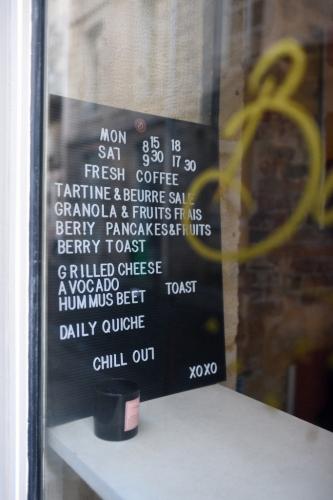 MON 8 15 18
SAT 9 30 17 30
FRESH COFFEE
TARTINE & BEURRE SALE
GRANOLA & FRUITS FRAIS
BERIY PANCAKES&FRUITS
BERRY TOAST
GRILLED CHEESE
AVOCADO TOAST
HUMMUS BEET
DAILY QUICHE
CHILL OUT
XOXO